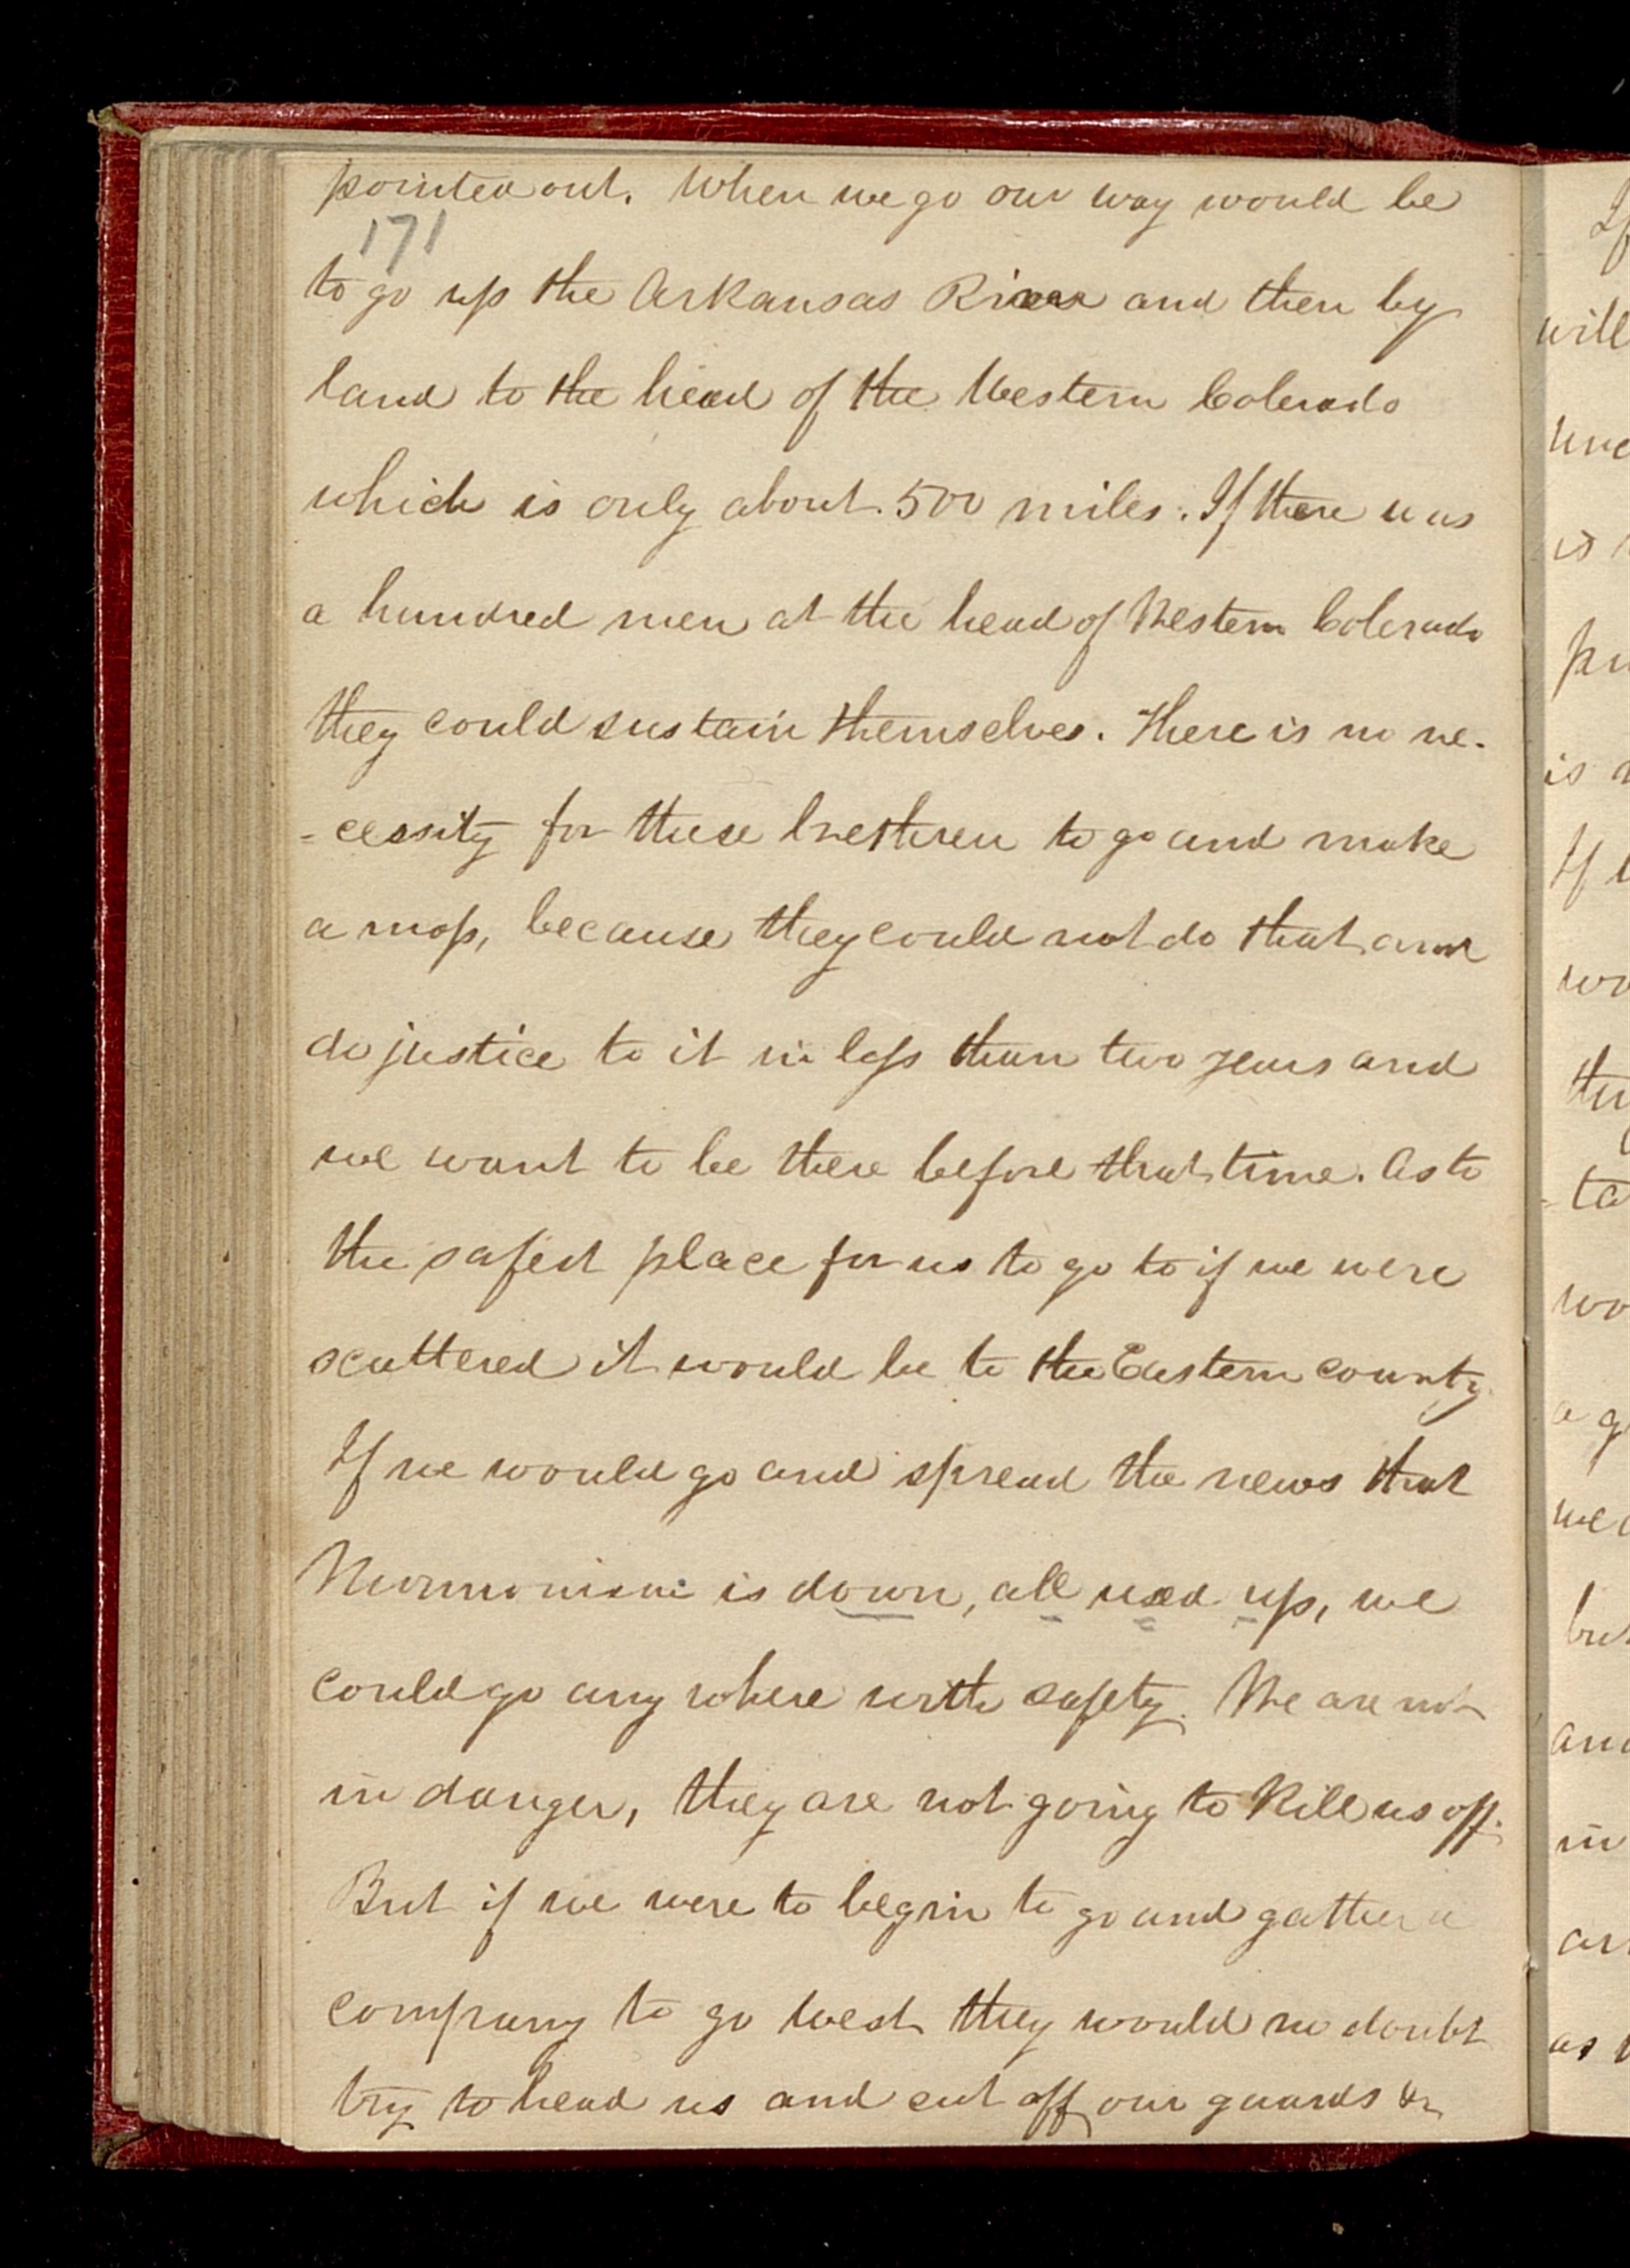 pointed out. When we go our way would be
171
to go up the Arkansas River and then by
land to the head of the Western Colerado
which is only about 500 miles. If there was
a hundred men at the head of Western Colerado
they could sustain themselves. There is no ne-
-cessity for these brethren to go and make
a map, because they could not do that and
do justice to it in less than two years and
we want to be there before that time. As to
the safest place for us to go to if we were
scattered it would be to the Eastern county.
If we would go and spread the news that
Mormonism is down, all used up, we
could go any where with safety. We are not
in danger, they are not going to kill us off.
But if we were to begin to go and gather a
company to go west they would no doubt
try to head us and cut off our guards &c
If
will
is
is
If
wo
the
-ta
wo
a
we
but
and
in
as